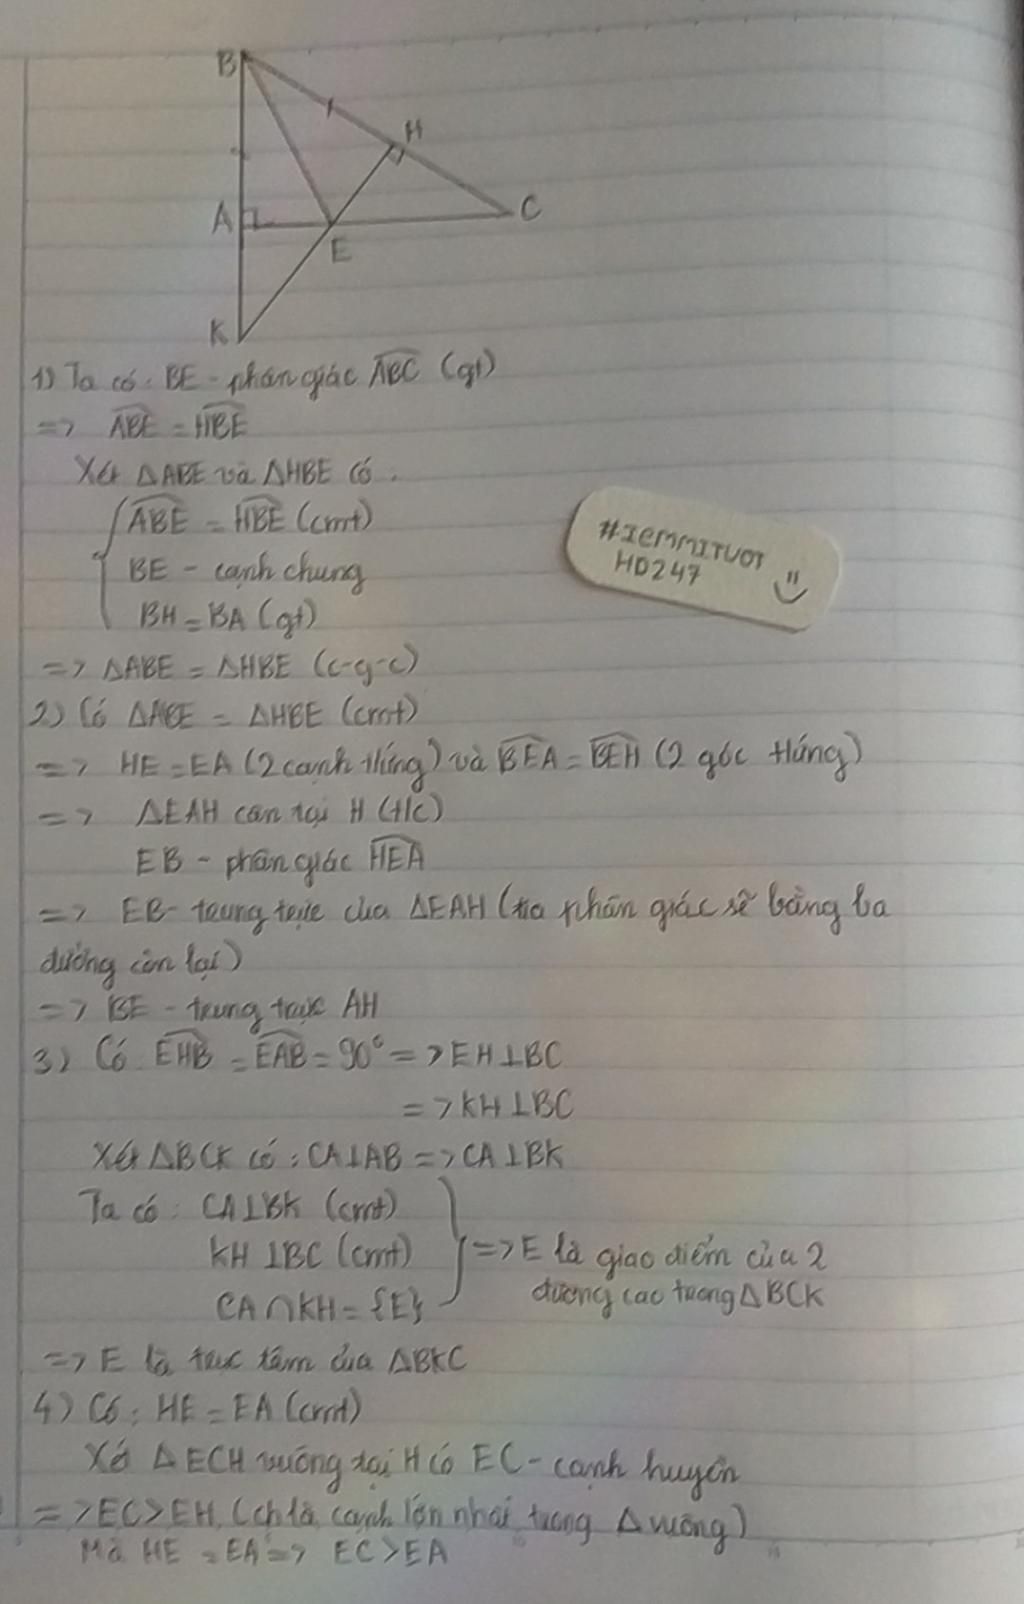 B
H
A
C
E
K
1) Ta có: BE - phân giác ABC (gt)
=> ABE = HBE
Xét ΔABE và ΔHBE có:
ABE = HBE (cmt)
BE - cạnh chung
BH = BA (gt)
=> ΔABE = ΔHBE (c-g-c)
#IEMMITUOT
HD247
2) Có ΔABE = ΔHBE (cmt)
=> HE = EA (2 cạnh t/ứng) và BEA = BEH (2 góc t/ứng)
=> ΔEAH cân tại H (t/c)
EB - phân giác HEA
=> EB - trung trực của ΔEAH (tia phân giác sẽ bằng ba
đường còn lại)
=> BE - trung trực AH
3) Có: EHB = EAB = 90° => EH⊥BC
=> KH⊥BC
Xét ΔBCK có: CA⊥AB => CA⊥BK
Ta có: CA⊥BK (cmt)
KH⊥BC (cmt)
CA∩KH = {E}
=> E là giao điểm của 2
đường cao trong ΔBCK
=> E là trực tâm của ΔBKC
4) Có: HE = EA (cmt)
Xét ΔECH vuông tại H có EC - cạnh huyền
=> EC > EH (ch là cạnh lớn nhất trong Δ vuông)
Mà HE = EA => EC > EA